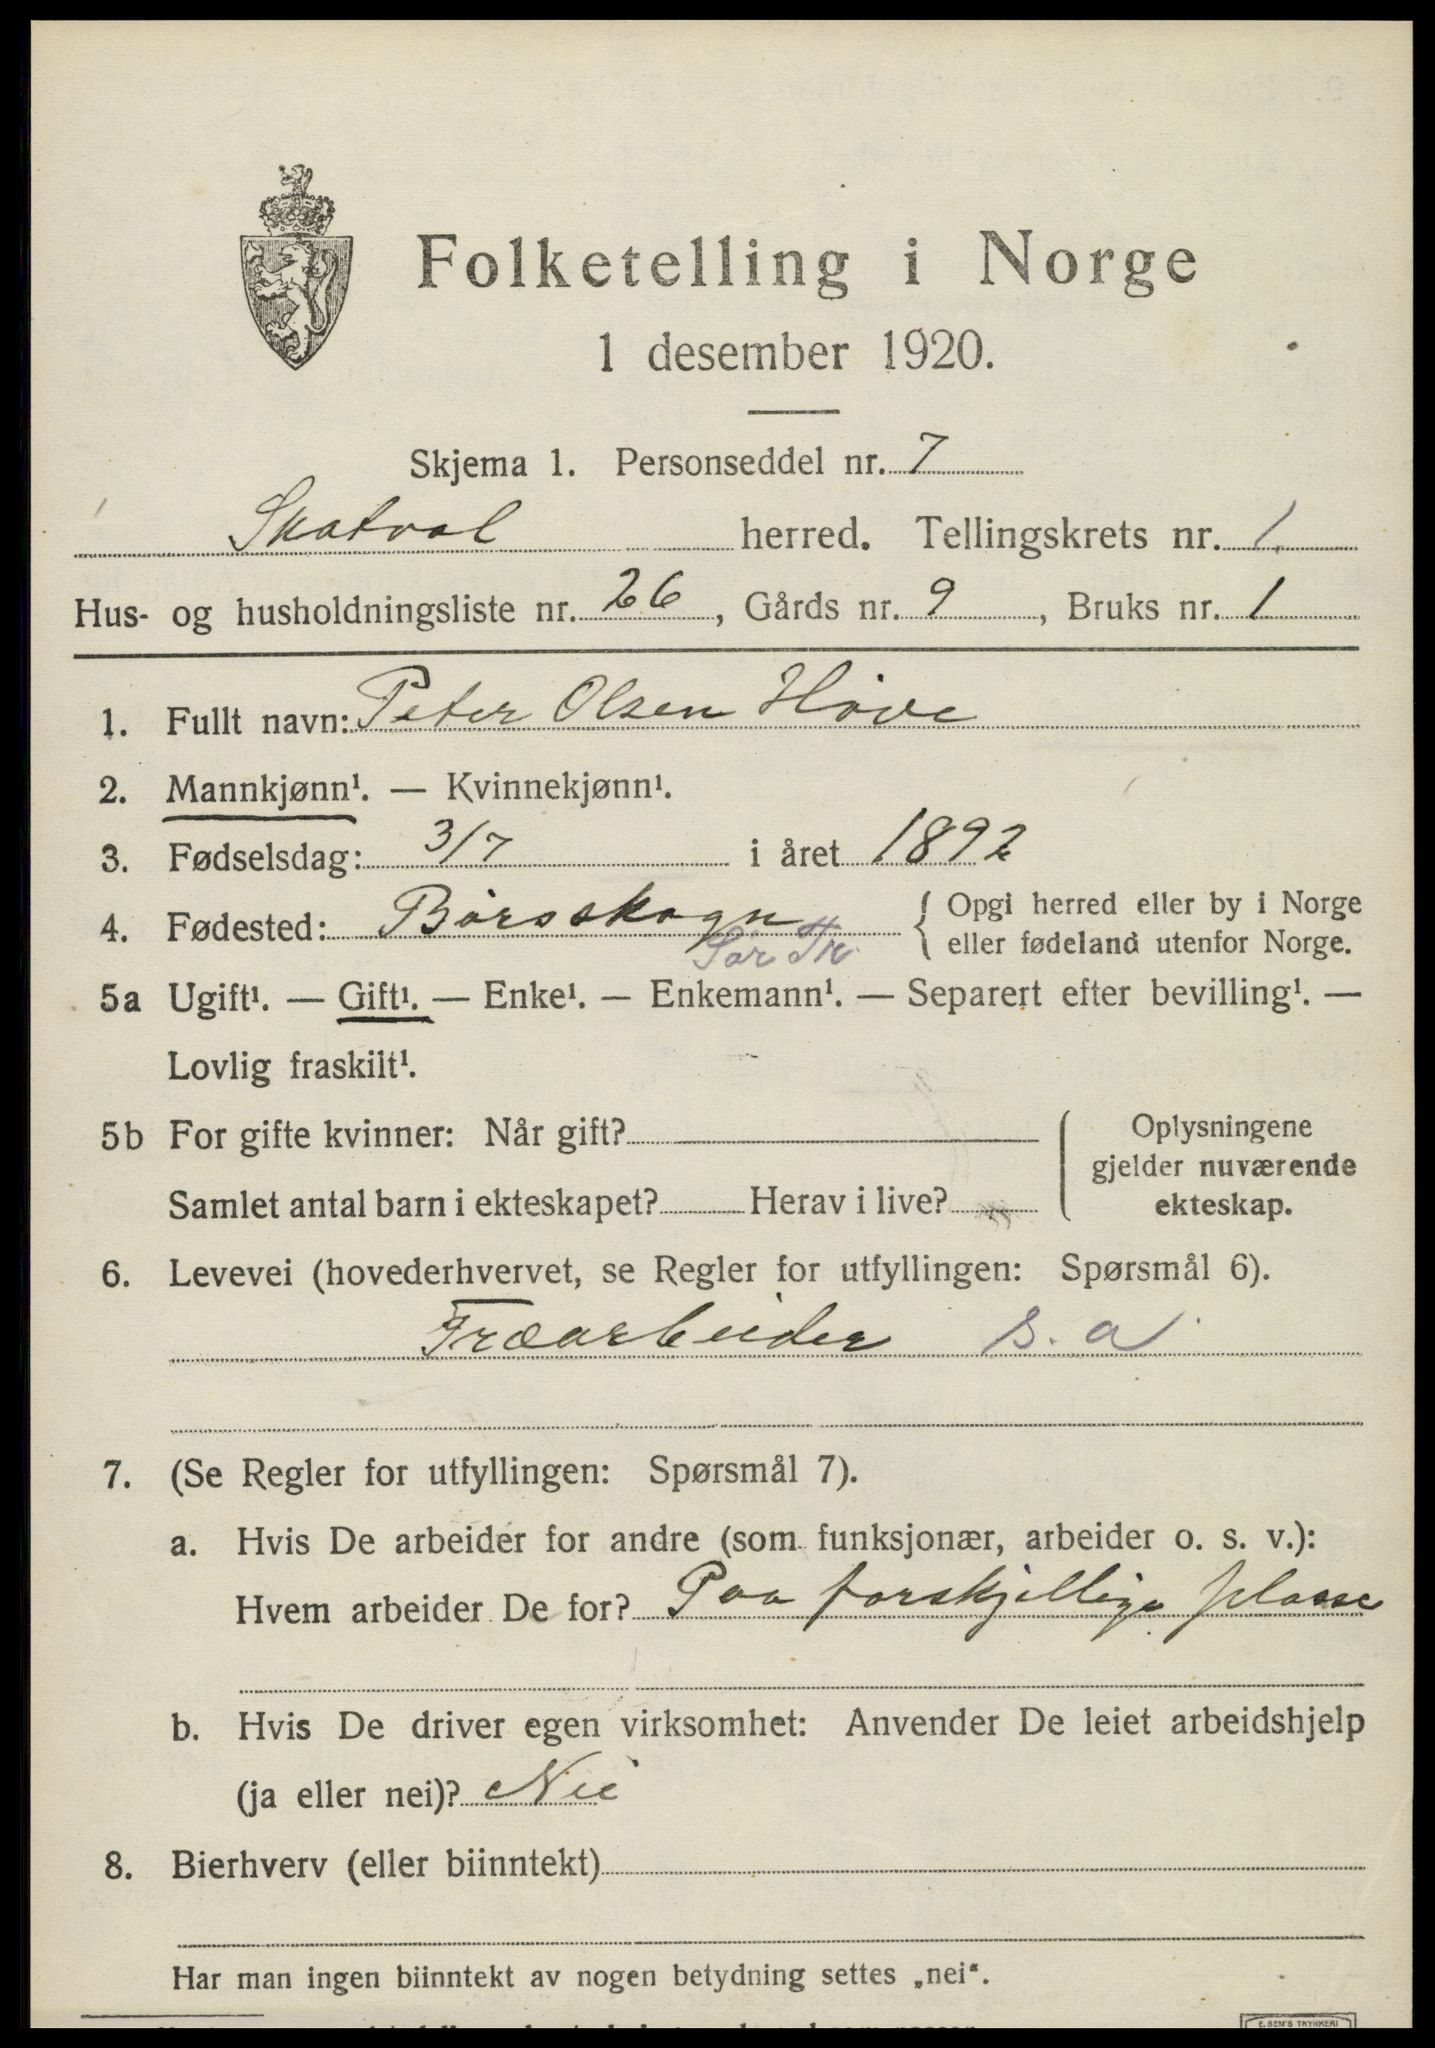 Folketelling i Norge
1 desember 1920.
Skjema 1. Personseddel nr. 7
Skatval herred. Tellingskrets nr. 1.
Hus- og husholdningsliste nr. 26, Gårds nr. 9, Bruks nr. 1
1. Fullt navn: Peter Olsen Höve
2. Mannkjønn¹. — Kvinnekjønn¹.
3. Fødselsdag: 3/7 i året 1892
4. Fødested: Börsskogn { Opgi herred eller by i Norge
Sör Tr. eller fødeland utenfor Norge.
5a Ugift¹. — Gift¹. — Enke¹. — Enkemann¹. — Separert efter bevilling¹. —
Lovlig fraskilt¹.
5b For gifte kvinner: Når gift?
Samlet antal barn i ekteskapet? Herav i live?
Oplysningene
gjelder nuværende
ekteskap.
6. Levevei (hovederhvervet, se Regler for utfyllingen: Spørsmål 6).
Træarbeider s. a.
7. (Se Regler for utfyllingen: Spørsmål 7).
a. Hvis De arbeider for andre (som funksjonær, arbeider o. s. v.):
Hvem arbeider De for? Paa forskjellige plasse
b. Hvis De driver egen virksomhet: Anvender De leiet arbeidshjelp
(ja eller nei)? Nei
8. Bierhverv (eller biinntekt)
Har man ingen biinntekt av nogen betydning settes „nei“.
E. SEM'S TRYKKERI